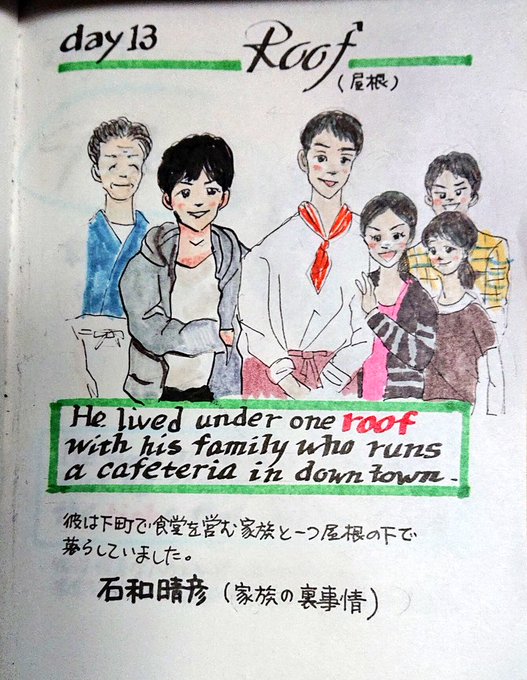 day 13
Roof
(屋根)
He lived under one roof
with his family who runs
a cafeteria in down town.
彼は下町で食堂を営む家族と一つ屋根の下で
暮らしていました。
石和晴彦 (家族の裏事情)